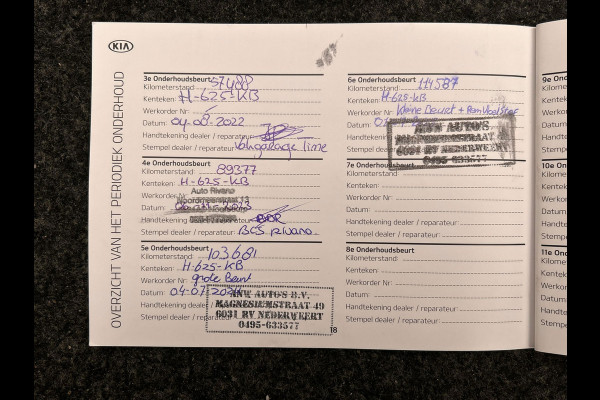 KIA
OVERZICHT VAN HET PERIODIEK ONDERHOUD
3e Onderhoudsbeurt
Kilometerstand: 57488
Kenteken: H-625-KB
Werkorder Nr:
Datum: 04.08.2022
Handtekening dealer / reparateur:
Stempel dealer / reparateur: Vakgarage lime
4e Onderhoudsbeurt
Kilometerstand: 89377
Kenteken: H-625-KB
Werkorder Nr:
Auto Rivano
Datum:
Handtekening dealer / reparateur:
Stempel dealer / reparateur: BCS Rivano
5e Onderhoudsbeurt
Kilometerstand: 103681
Kenteken: H-625-KB
Werkorder Nr: grote Beurt
Datum: 04-07-2024
Handtekening dealer / reparateur:
Stempel dealer / reparateur:
ANW AUTO'S B.V.
MAGNESIUMSTRAAT 49
6031 RV NEDERWEERT
0495-633577
18
6e Onderhoudsbeurt
Kilometerstand: 114587
Kenteken: H-625-KB
Werkorder Nr: Kleine Beurt + Remvloeistof
Datum:
Handtekening dealer / reparateur:
Stempel dealer
ANW AUTO'S
MAGNESIUMSTRAAT 4
6031 RV NEDERWEERT
0495-633577
7e Onderhoudsbeurt
Kilometerstand:
Kenteken:
Werkorder Nr:
Datum:
Handtekening dealer / reparateur:
Stempel dealer / reparateur:
8e Onderhoudsbeurt
Kilometerstand:
Kenteken:
Werkorder Nr:
Datum:
Handtekening dealer / reparateur:
Stempel dealer / reparateur:
9e Ond
Kilomete
Kenteken
Werkord
Datum:
Handteke
Stempel
10e Ond
Kilomet
Kenteke
Werkord
Datum:
Handtek
Stempel
11e Ond
Kilomet
Kenteke
Werkor
Datum:
Handte
Stempe